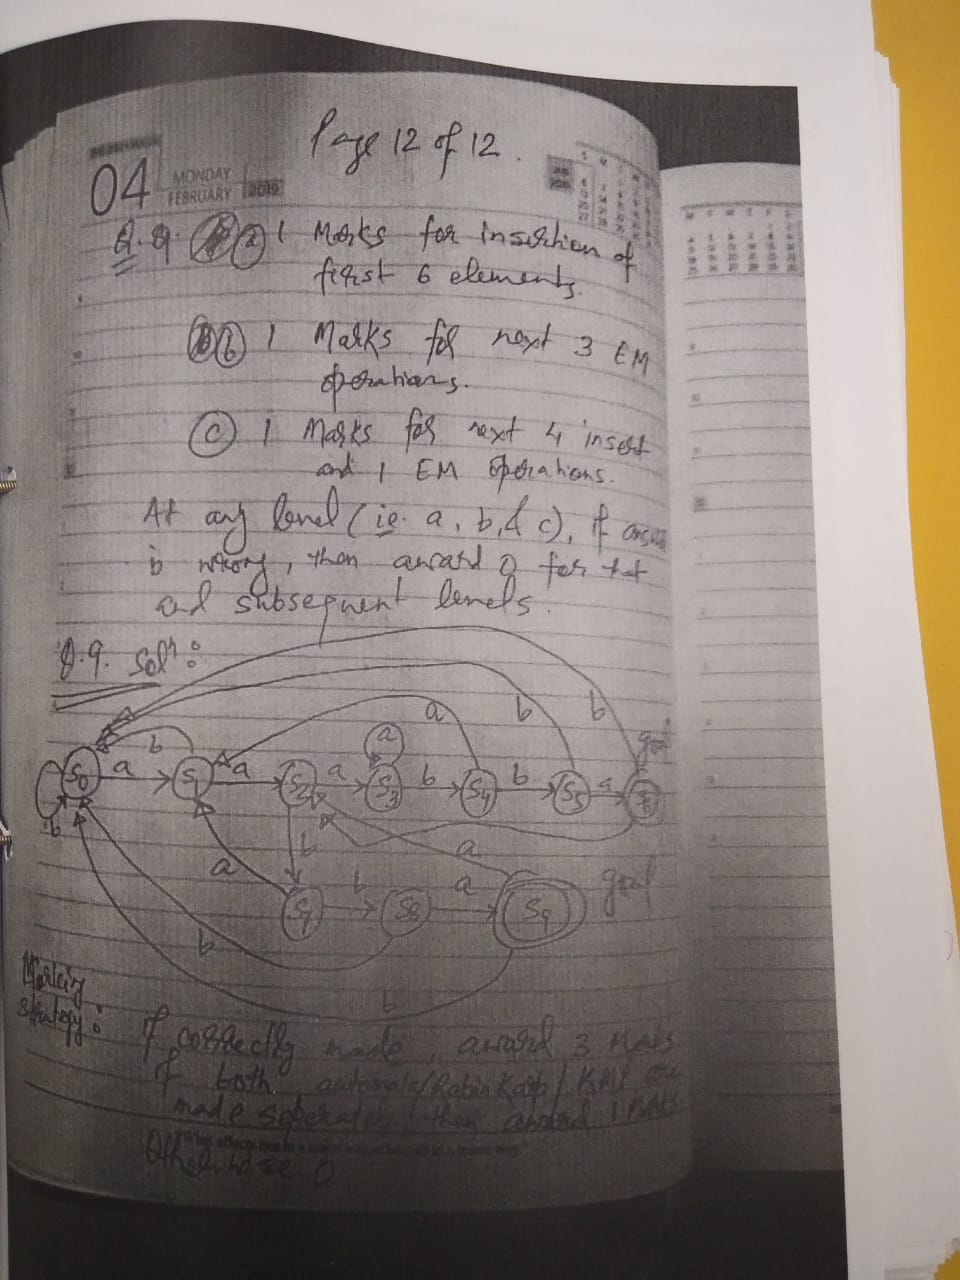 Page 12 of 12.
04 MONDAY
FEBRUARY 2019
Q.9. (a) 1 Marks for insertion of
first 6 elements.
(b) 1 Marks for next 3 EM
operations.
(c) 1 Marks for next 4 insert
and 1 EM operations.
At any level (ie. a, b, & c), if
is wrong, then award 0 for tht
and subsequent levels.
Q.9. Solⁿ:
b
a b b
b a goal
S0 a S1 a S2 a S3 b S4 b S5 a
b
b a
a b a goal
S7 S8 S9
b
b
Marking
strategy:
If correctly made, award 3 Marks
If both automata/Rabin Karp/KMP are
made seperate, then award 1 Marks
Otherwise 0